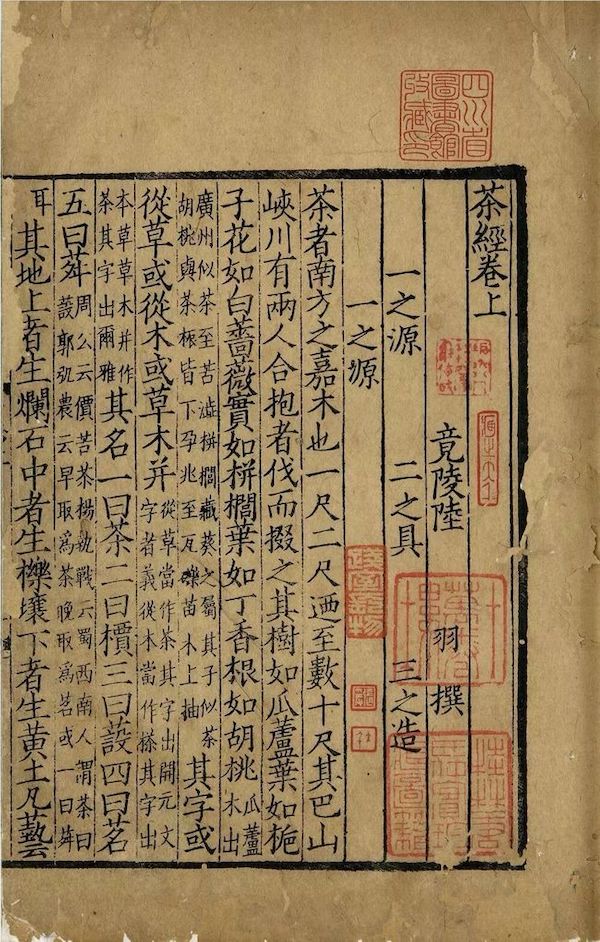 四川省圖書館收藏印
茶經卷上
竟陵陸 羽 撰
一之源 二之具 三之造
一之源
茶者南方之嘉木也一尺二尺迺至數十尺其巴山
峽川有兩人合抱者伐而掇之其樹如瓜蘆葉如梔
子花如白薔薇實如栟櫚葉如丁香根如胡桃瓜蘆木出
廣州似茶至苦澁栟櫚藏葵之屬其子似茶胡桃與茶根皆下孕兆至瓦礫苗木上抽其字或
從草或從木或草木并從草當作茶其字出開元文字者義從木當作搽其字出
本草草木并作茶其字出爾雅其名一曰茶二曰檟三曰設四曰茗
五曰荈周公云價苦茶楊執戟云蜀西南人謂茶曰設郭弘農云早取爲茶晚取爲茗或一曰荈
耳其地上者生爛石中者生櫟壤下者生黃土凡藝